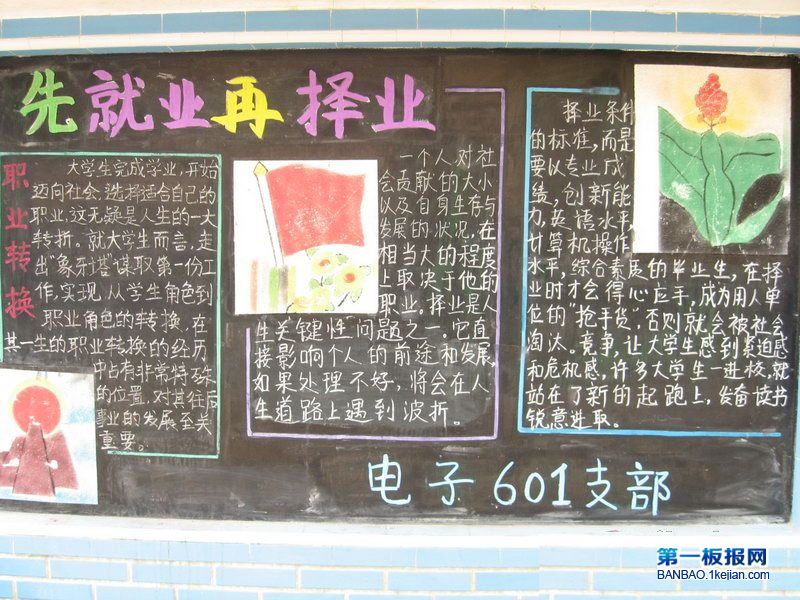 先就业再择业
职业转换
大学生完成学业,开始
迈向社会,选择适合自己的
职业,这无疑是人生的一大
转折。就大学生而言,走
出"象牙塔"谋取第一份工
作,实现从学生角色到
职业角色的转换,在
其一生的职业转换的经历
中占有非常特殊
的位置,对其往后
事业的发展至关
重要。
一个人对社
会贡献的大小
以及自身生存与
发展的状况,在
相当大的程度
上取决于他的
职业。择业是人
生关键性"问题之一。它直
接影响个人的前途和发展,
如果处理不好,将会在人
生道路上遇到波折。
择业条件
的标准,而是
要以专业成
绩,创新能
力,英语水平,
计算机操作
水平,综合素质的毕业生,在择
业时才会得心应手,成为用人单
位的"抢手货",否则就会被社会
淘汰。竞争,让大学生感到紧迫感
和危机感,许多大学生一进校,就
站在了新的起跑上,发奋读书
锐意进取。
电子601支部
第一板报网
BANBAO.1kejian.com